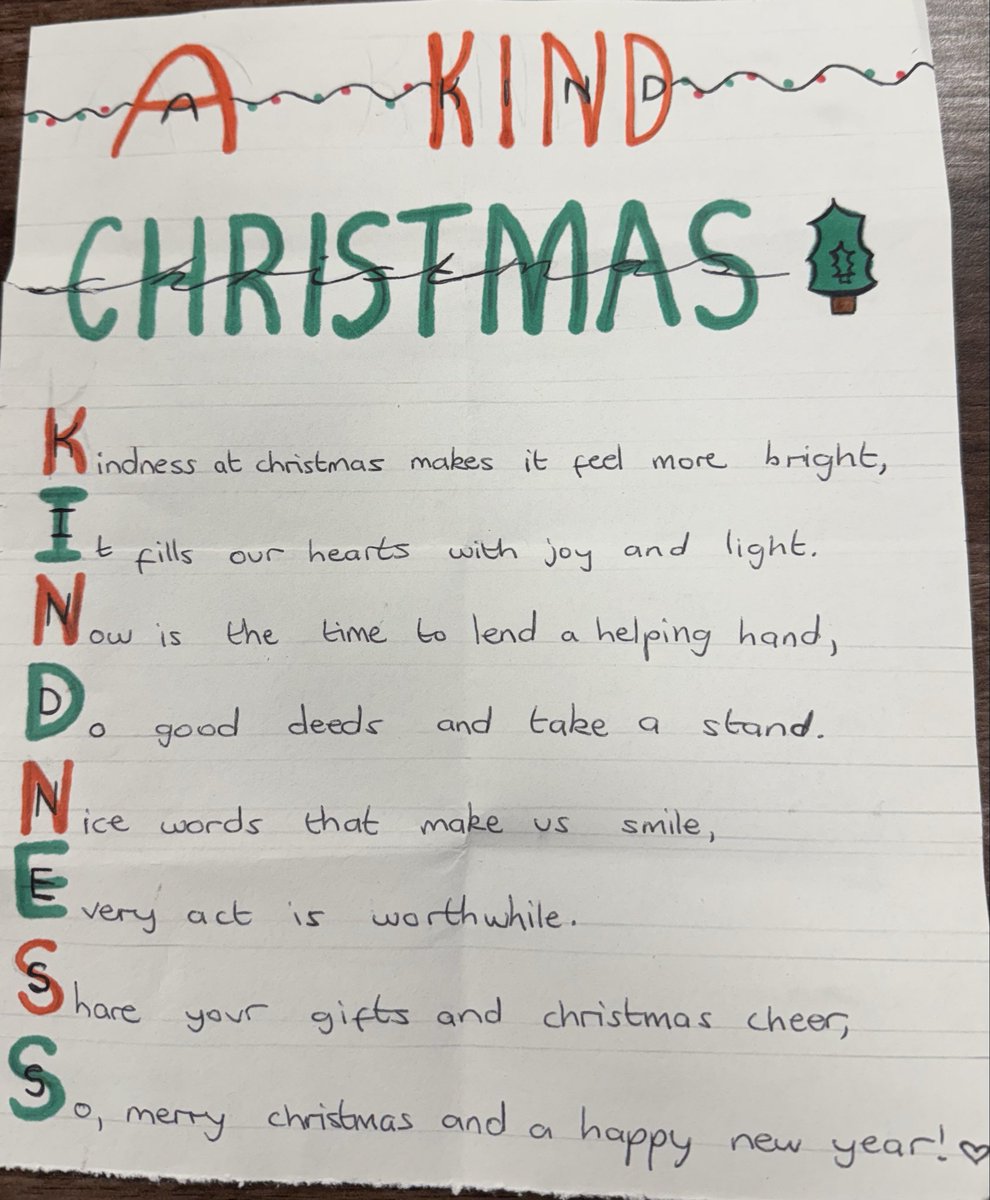 A KIND
CHRISTMAS
Kindness at christmas makes it feel more bright,
It fills our hearts with joy and light.
Now is the time to lend a helping hand,
Do good deeds and take a stand.
Nice words that make us smile,
Every act is worthwhile.
Share your gifts and christmas cheer,
So, merry christmas and a happy new year!